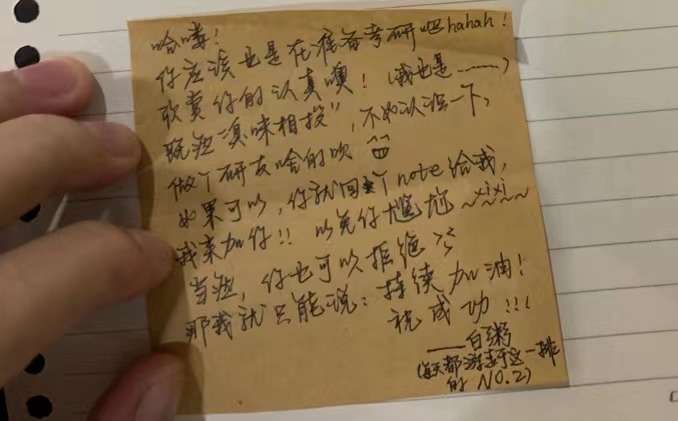 哈喽!
你应该也是在准备考研吧hahah!
欣赏你的认真噢!(我也是……)
既然"臭味相投",不如认识一下,
做个研友啥的吹
如果可以,你就回个note给我,
我来加你!!以免你尴尬~xixi~
当然,你也可以拒绝
那我就只能说:持续加油!
祝成功!!!
——白粥
(每天都游走于这一排
的NO.2)